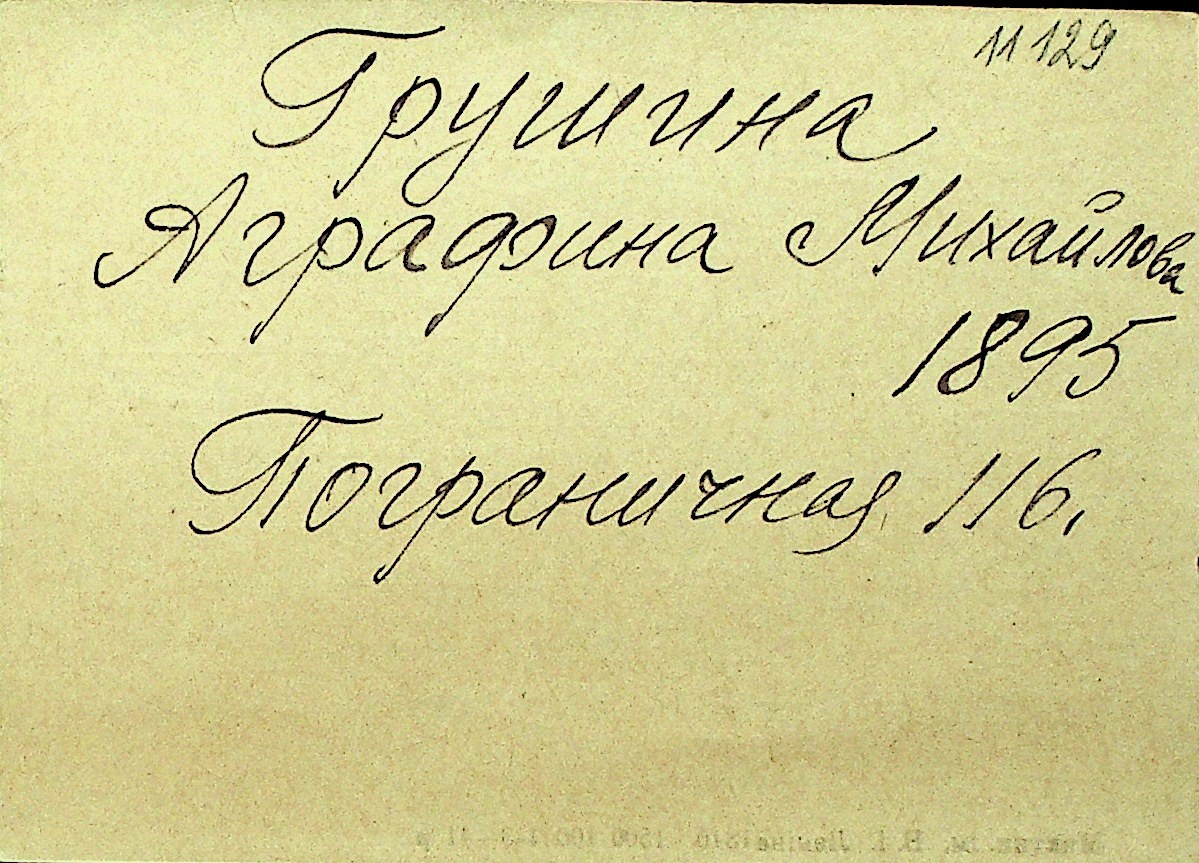 11129
Грушина
Аграфина Михайлова
1895
Пограничная 116.